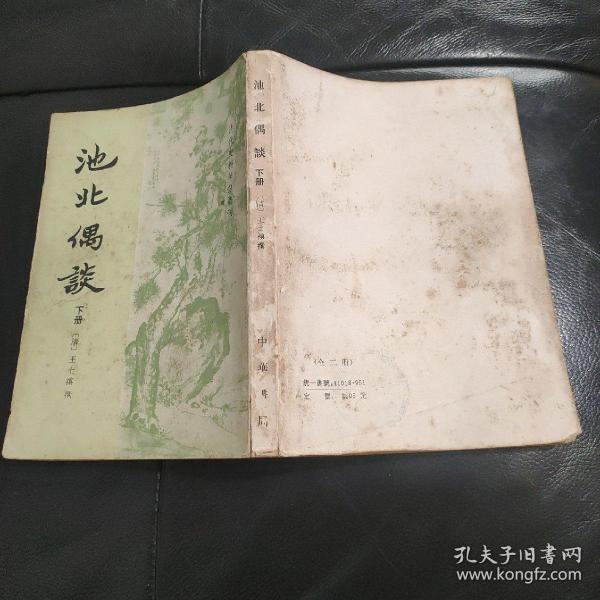 池北偶談
下册
〔清〕王士禛撰
池北偶談
下册
〔清〕王士禛撰
中華書局
（全二册）
統一書號:11018·951
定價:
元
孔夫子旧书网
www.kongfz.com